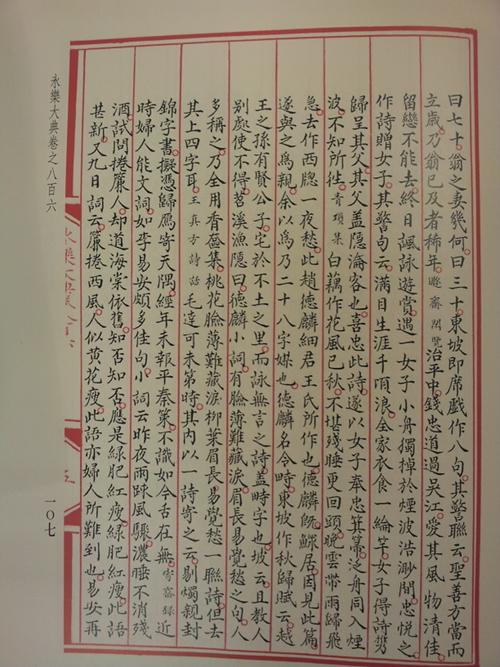 曰七十翁之妻幾何曰三十東坡即席戲作八句其警聯云聖善方當而
立歲乃翁已及者稀年 遯齋閑覽 治平中錢忠道過吳江愛其風物清佳
留戀不能去終日諷詠遊賞遇一女子小舟獨棹於煙波浩渺間忠悅之
作詩贈女子其警句云滿目生涯千頃浪全家衣食一綸竿女子得詩
歸呈其父其父盖隱淪客也喜忠此詩遂以女子奉忠箕箒泛舟同入煙
波不知所徃 青瑣集 白藕作花風已秋不堪殘睡更回頭晚雲帶雨歸飛
急去作西牎一夜愁此趙德麟細君王氏所作也德麟旣鰥居因見此篇
遂與之為親余以為乃二十八字媒也德麟名令時東坡作秋歸賦云越
王之孫有賢公子宅於不土之里而詠無言之詩盖時字也坡云且教人
別處使不得苕溪漁隱曰德麟小詞有臉薄難藏淚眉長易覺愁之句人
多稱之乃全用香奩集桃花臉薄難藏淚柳葉眉長易覺愁一聯詩但去
其上四字耳 王直方詩話 毛達可未第時其内以一詩寄之云剔燭親封
錦字書擬憑歸鴈寄天隅經年未報平秦策不識如今舌在無 齋録 近
時婦人能文詞如李易安頗多佳句小詞云昨夜雨踈風驟濃睡不消殘
酒試問捲簾人却道海棠依舊知否知否應是緑肥紅瘦緑肥紅瘦此語
甚新又九日詞云簾捲西風人似黄花瘦此語亦婦人所難到也易安再
永樂大典卷之八百六
一〇七